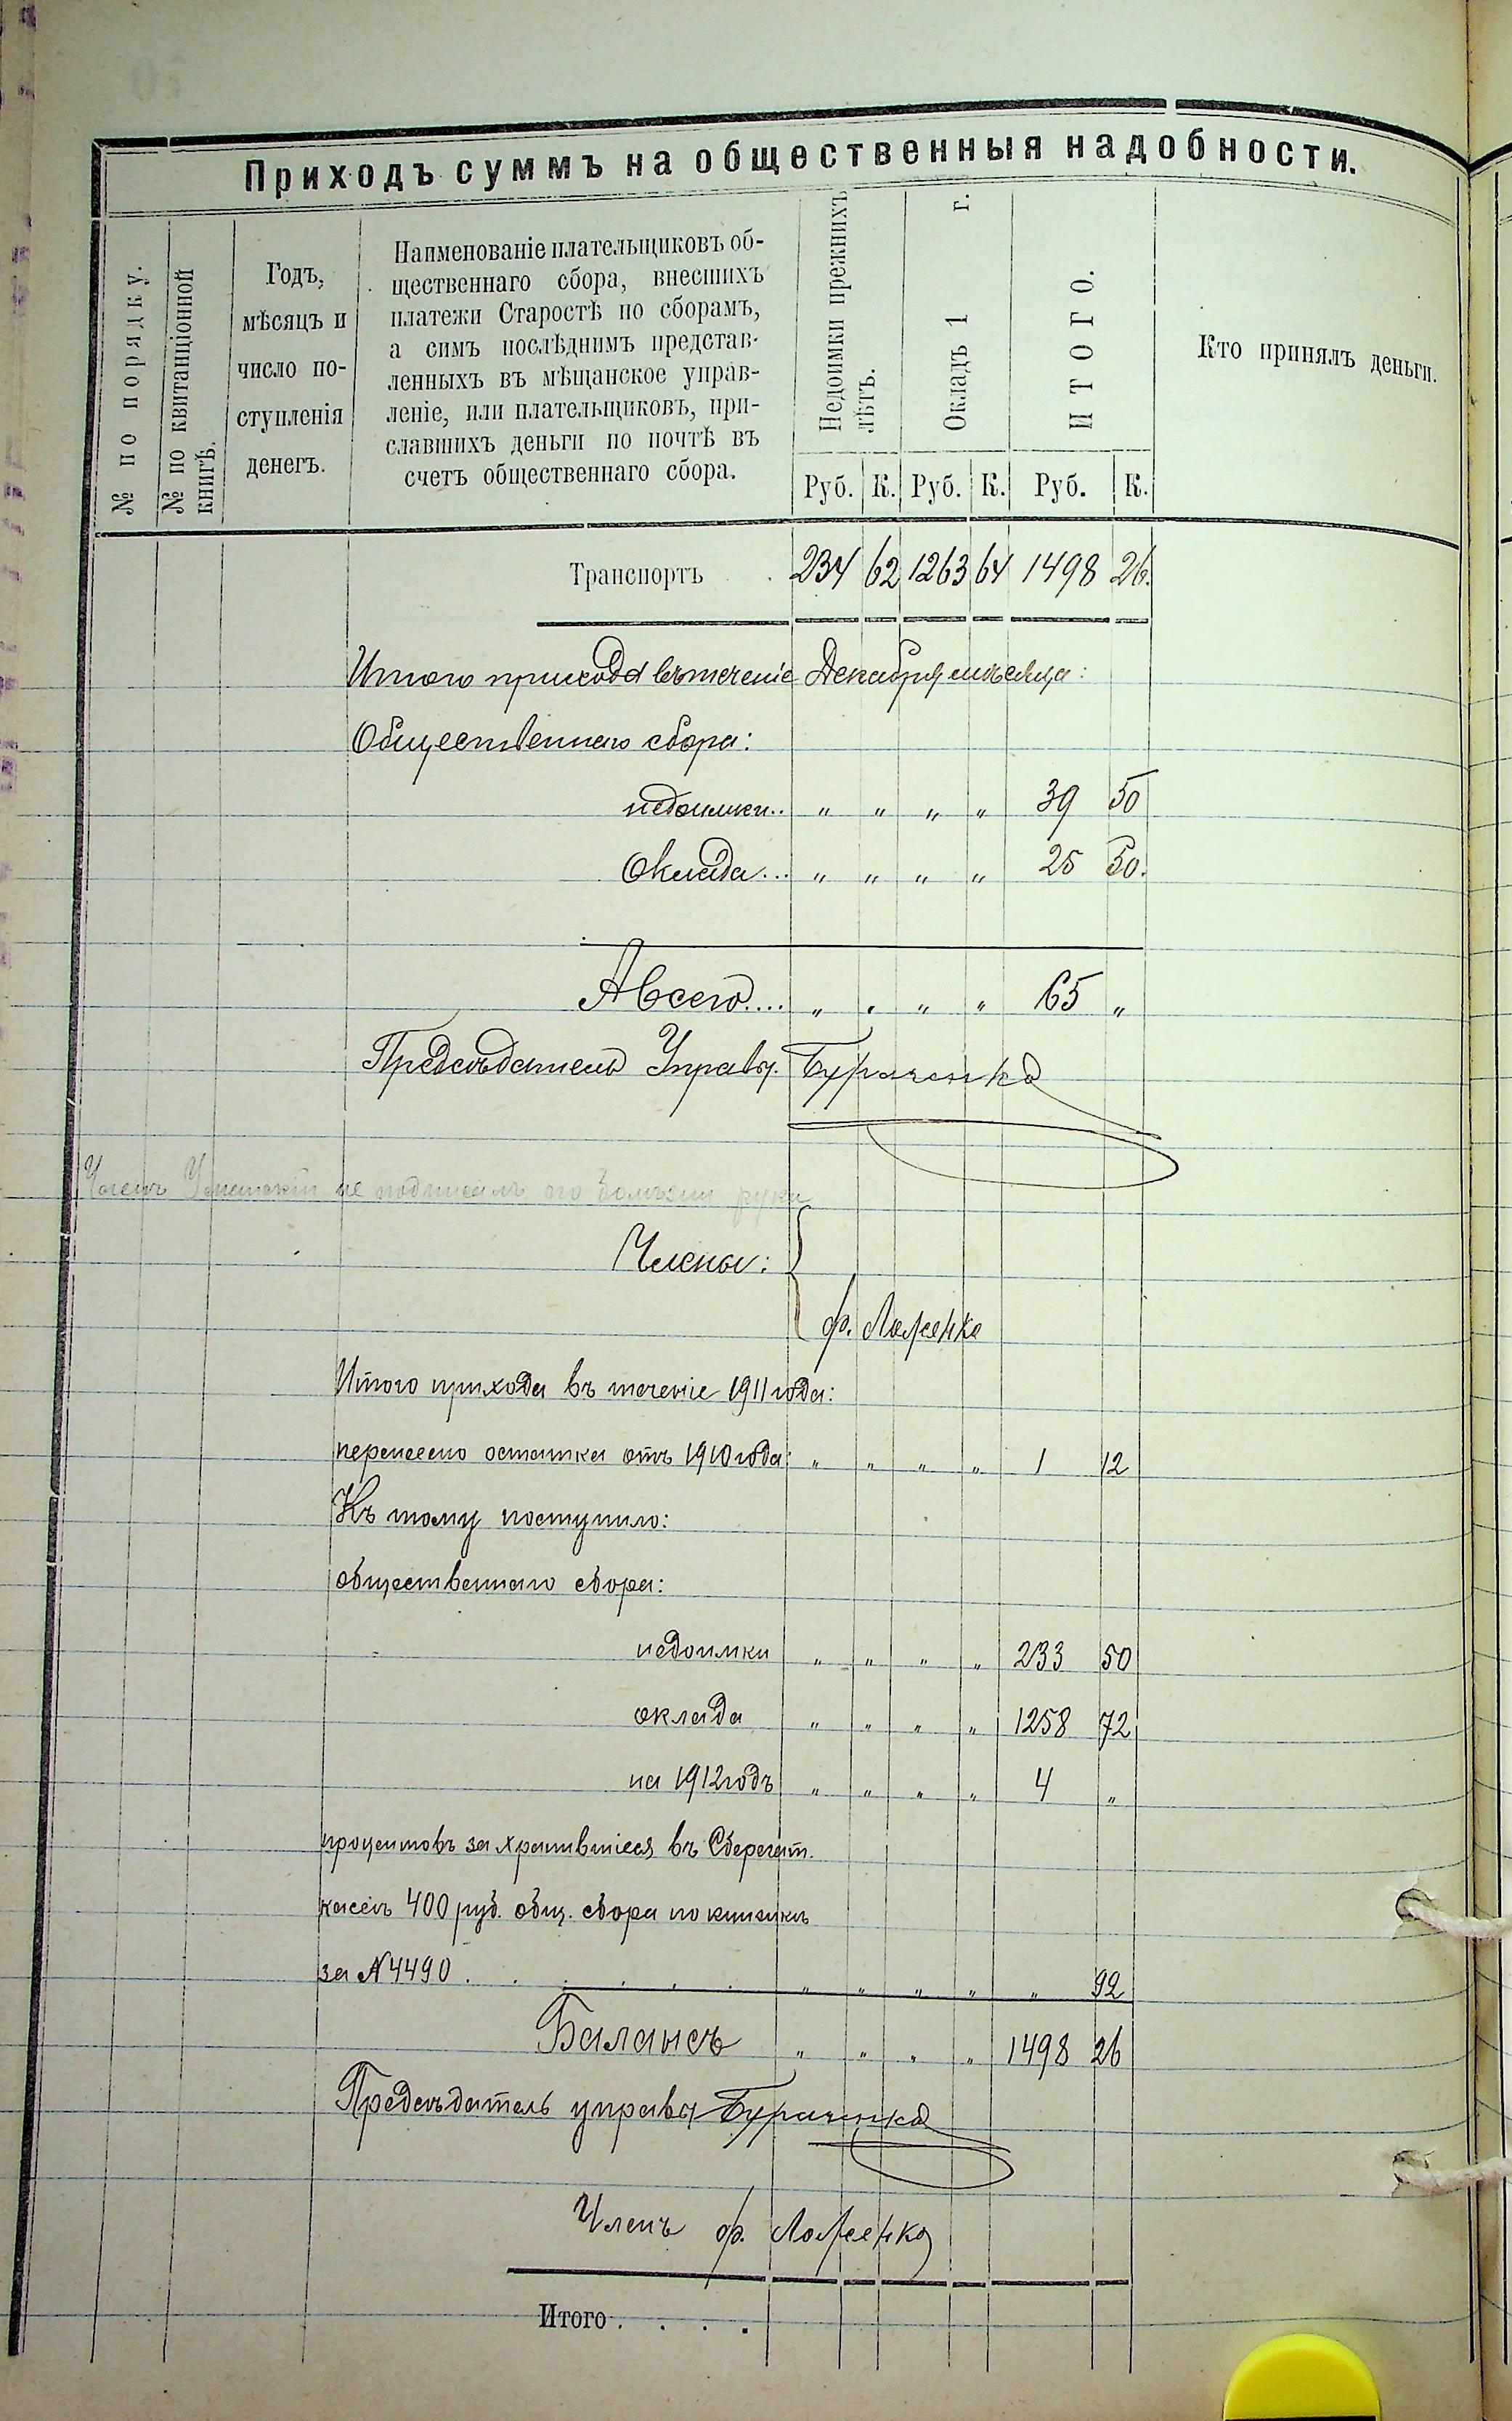 Приходъ суммъ на общественныя надобности.
№ по порядку.
№ по квитанціонной
книгѣ.
Годъ,
мѣсяцъ и
число по-
ступленія
денегъ.
Наименованіе плательщиковъ об-
щественнаго сбора, внесшихъ
платежи Старостѣ по сборамъ,
а симъ послѣднимъ представ-
ленныхъ въ мѣщанское управ-
леніе, или плательщиковъ, при-
славшихъ деньги по почтѣ въ
счетъ общественнаго сбора.
Недоимки прежнихъ
лѣтъ.
Окладъ 1 г.
ИТОГО.
Кто принялъ деньги.
Руб. К. Руб. К. Руб. К.
Транспортъ . . 234 62 1263 64 1498 26.
Итого прихода въ теченіе Декабря мѣсяца:
Общественнаго сбора:
недоимки.. " " " " 39 50
Оклада... " " " " 25 50.
А всего.... " " " " 65 "
Предсѣдатель Управы
Членъ не подписалъ его руки
Члены:
Ф.
Итого прихода въ теченіе 1911 года:
перенесено остатка отъ 1910 года: " " " " 1 12
Къ тому поступило:
общественнаго сбора:
недоимки " " " " 233 50
оклада " " " " 1258 72
на 1912 годъ " " " " 4 "
процентовъ за хранившіеся въ Сберегат.
кассѣ 400 руб. общ. сбора по книжкѣ
за № 4490 . . . . . . " " " " " 92
Балансъ " " " " 1498 26
Предсѣдатель управы
Членъ Ф.
Итого . . . .